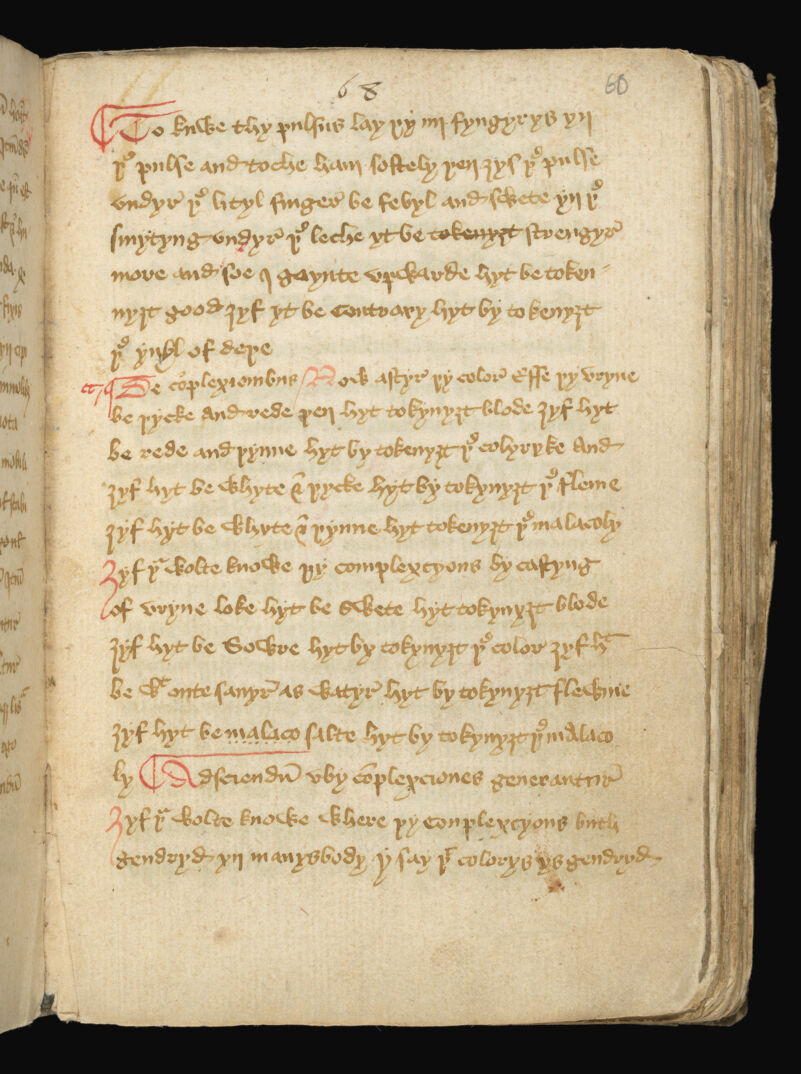 68
60
To knwe thy pulsus lay þy iiij fyngyrys yn
þe pulse and toche ham softely þen ȝyf þe pulse
vndyr þe lityl finger be febyl and swete yn þe
smytyng vndyr þe leche yt be tokenyȝt strengyr
more and soe gaynte vpwarde hyt be token
nyȝt good ȝyf yt be contrary hyt by tokenyȝt
þe of deþe
De co̅plexionibus Lok aftyr þy color Esse þy vryne
be þycke and rede þen hyt tokynyȝt blode ȝyf hyt
be rede and þynne hyt by tokenyȝt þe colyryke And
ȝyf hyt be whyte & þycke hyt by tokynyȝt þe fleme
ȝyf hyt be whyte & þynne hyt tokenyȝt þe malacoly
Ȝyf þu wolte knowe þy complexcyons by castyng
of vryne loke hyt be swete hyt tokynyȝt blode
ȝyf hyt be Sowre hyt by tokynyȝt þe color ȝyf ht
be wt onte sauyr as watyr hyt by tokynyȝt flewme
ȝyf hyt be malaco salte hyt by tokynyȝt þe malaco
ly Ad sciendu̅ vby co̅plexciones generantur
Ȝyf þu wolte knowe where þy conplexcyons buth
gendryd yn manys body y say þe colorys ys gendryd